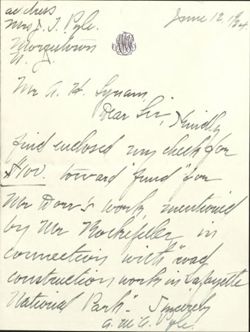 address
Mrs J. T. Pyle.
Morristown
N. J.
June 12, 1924
Mr A. H. Lynam,
Dear Sir, Kindly
find enclosed my check for
$100. toward fund "for
Mr Dorr's work, mentioned
by Mr Rockefeller in
connection with "road
construction work in Lafayette
National Park". Sincerely
A. McA. Pyle.